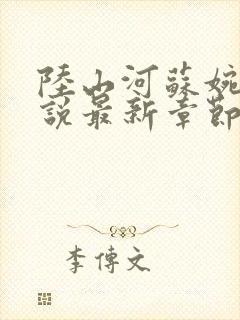 陸山河蘇婉
説最新章節
李傳文